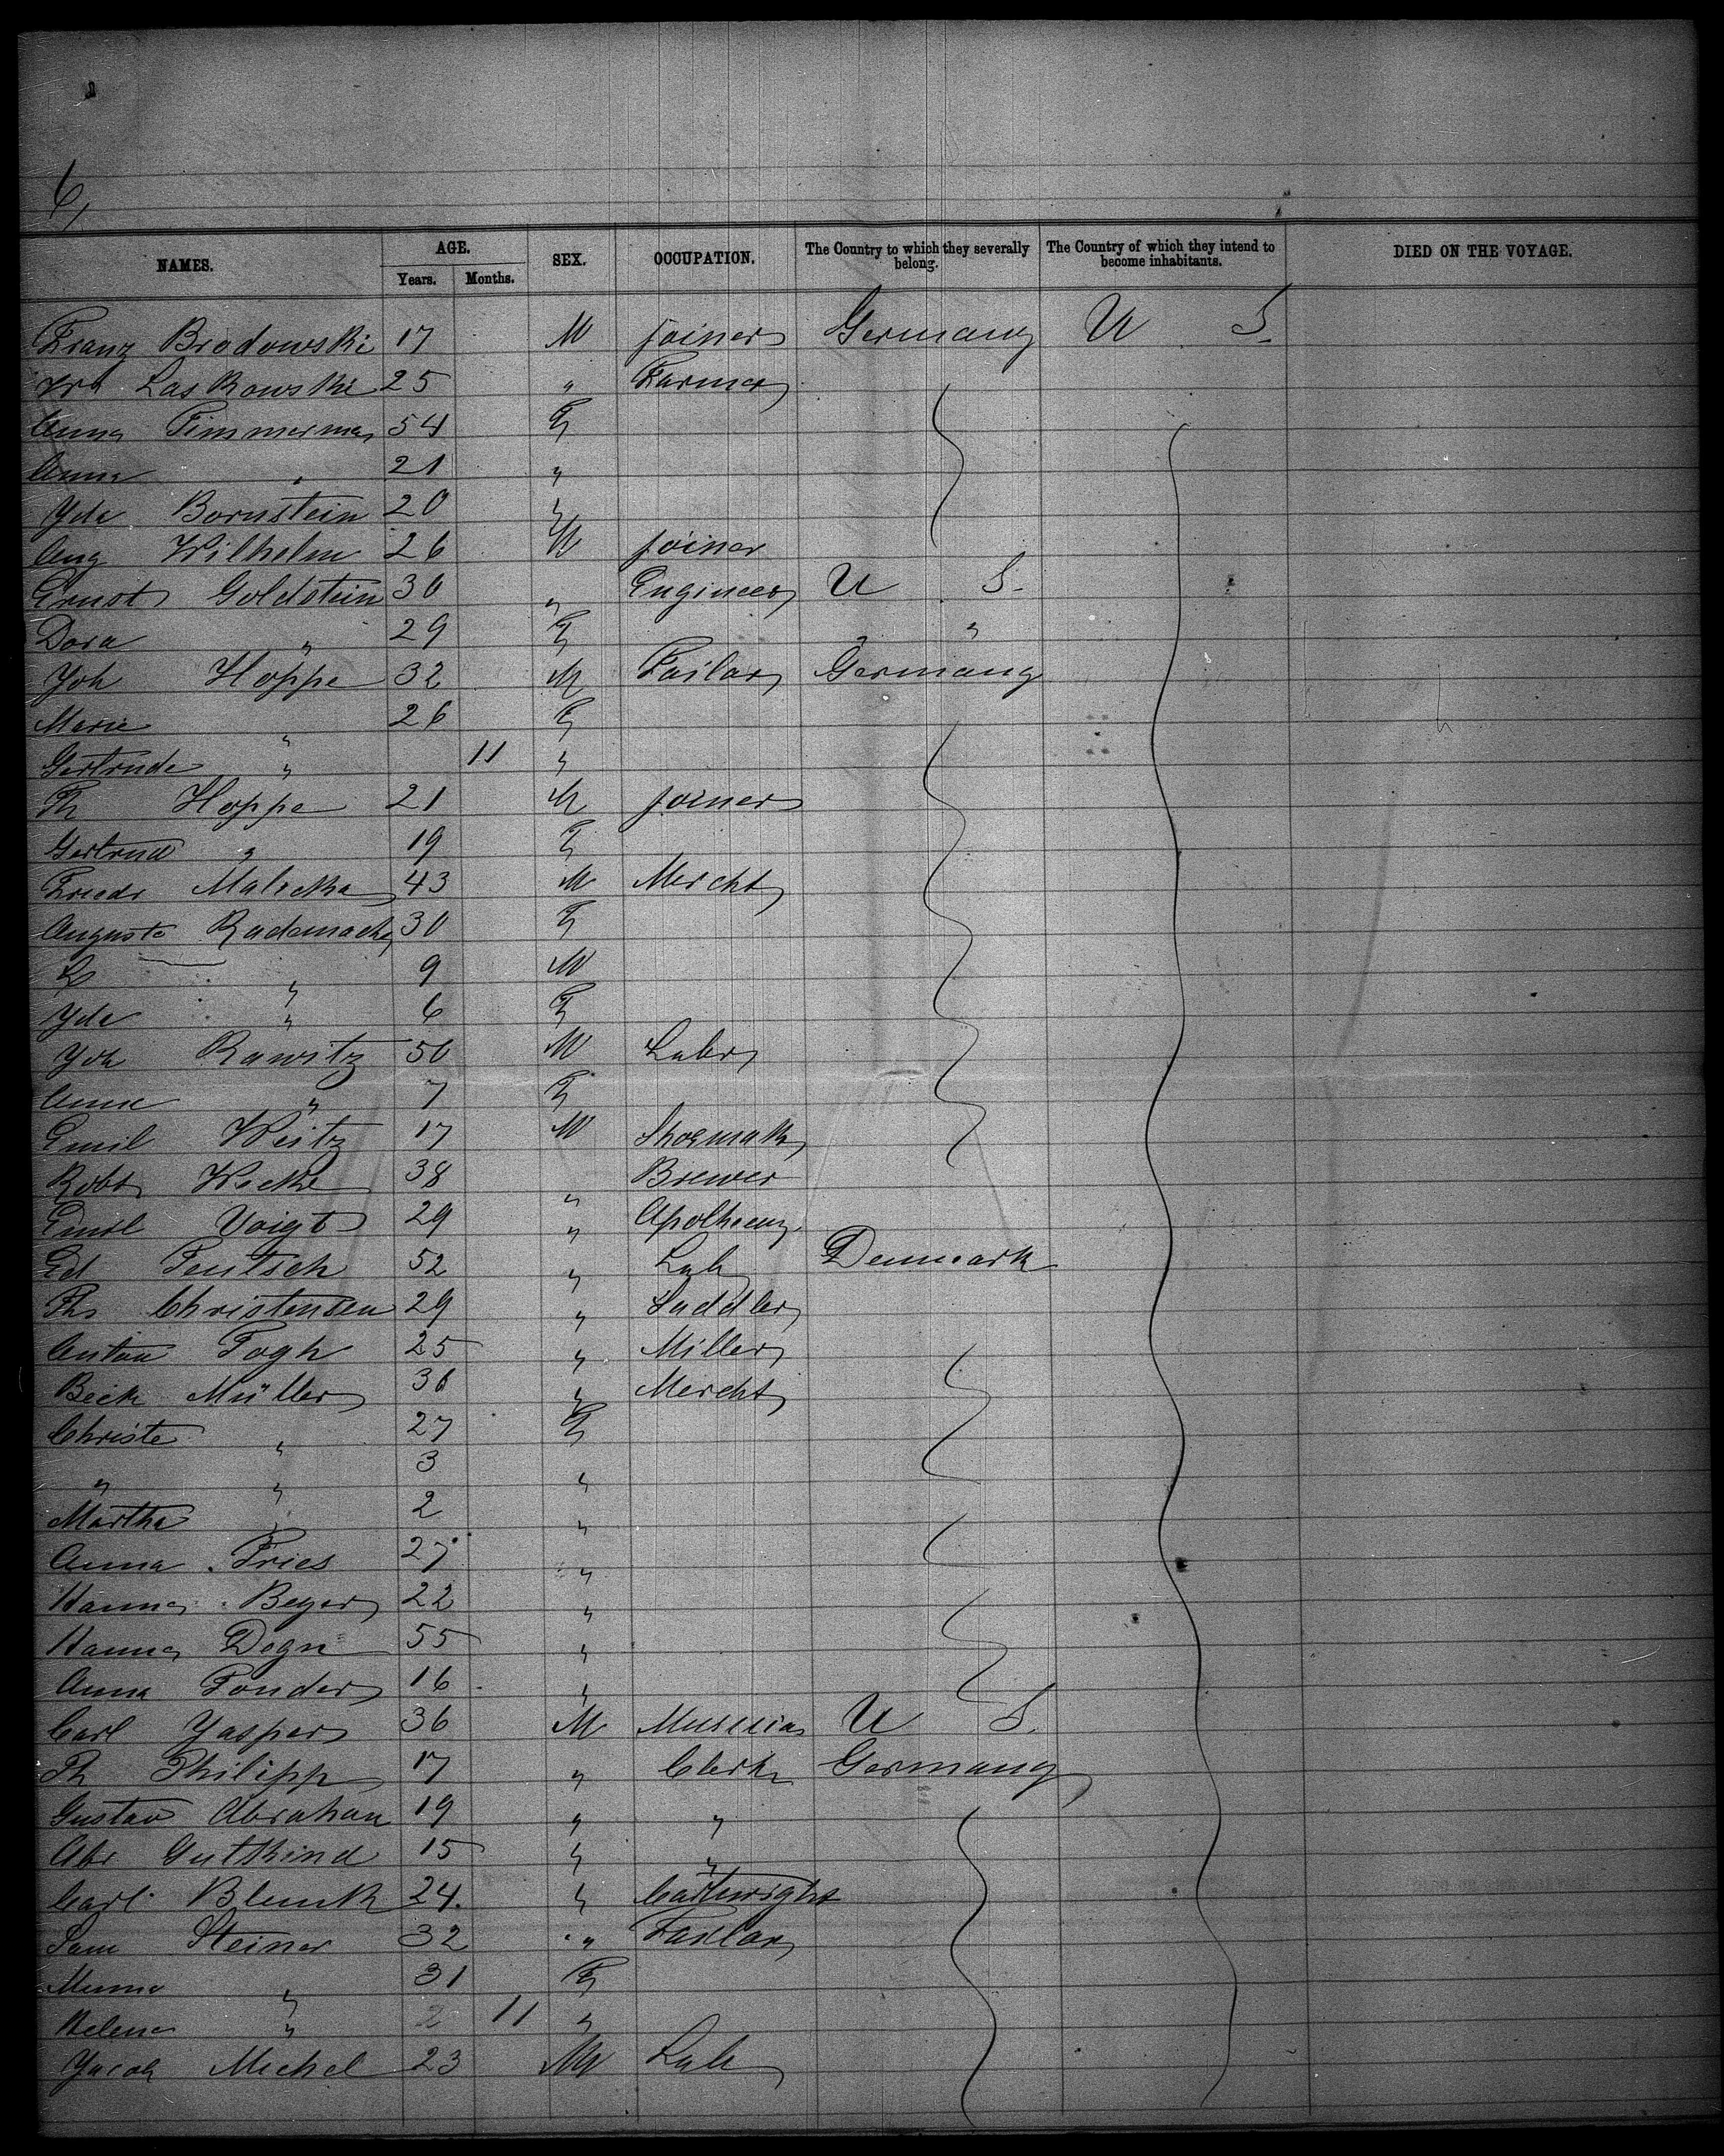 6,
NAMES. AGE. Years. Months. SEX. OCCUPATION. The Country to which they severally belong. The Country of which they intend to become inhabitants. DIED ON THE VOYAGE.
Franz Brodowski 17 M Joiner Germany U S.
Laskowski 25 " Farmer
Anna Timmerman 54 F
Anna " 21 "
Yda Bornstein 20 "
Aug Wilhelm 26 M Joiner
Ernst Goldstein 30 " Engineer U S.
Dora " 29 F "
Joh Hoppe 32 M Tailor Germany
Marie " 26 F
Gertrude " 11 "
Th Hoppe 21 M Joiner
Gertrud " 19 F
Friedr Malicka 43 M Mercht
Auguste Rademach 30 F
L " 9 M
Yda " 6 F
Joh Rawitz 50 M Labr
Anna " 7 F
Emil Weitz 17 M Shoemak
Robt Wecke 38 " Brewer
Emil Voigt 29 " Apothecary
Ed Teutsch 52 " Lab Denmark
Th Christensen 29 " Saddler
Anton Fogh 25 " Miller
Beck Müller 36 " Mercht
Christe " 27 F
" " 3 "
Martha " 2 "
Anna Fries 27 "
Hanna Beyer 22 "
Hanna Degn 55 "
Anna Fonder 16 "
Carl Jasper 36 M Musician U S.
Th Philipp 17 " Clerk Germany
Gustav Abraham 19 " "
Abr Gutkind 15 " "
Carl Blenk 24. " Cartwright
Sam Steiner 32 " Tailor
Minna " 31 F
Helene " 2 11 "
Jacob Michel 23 M Lab